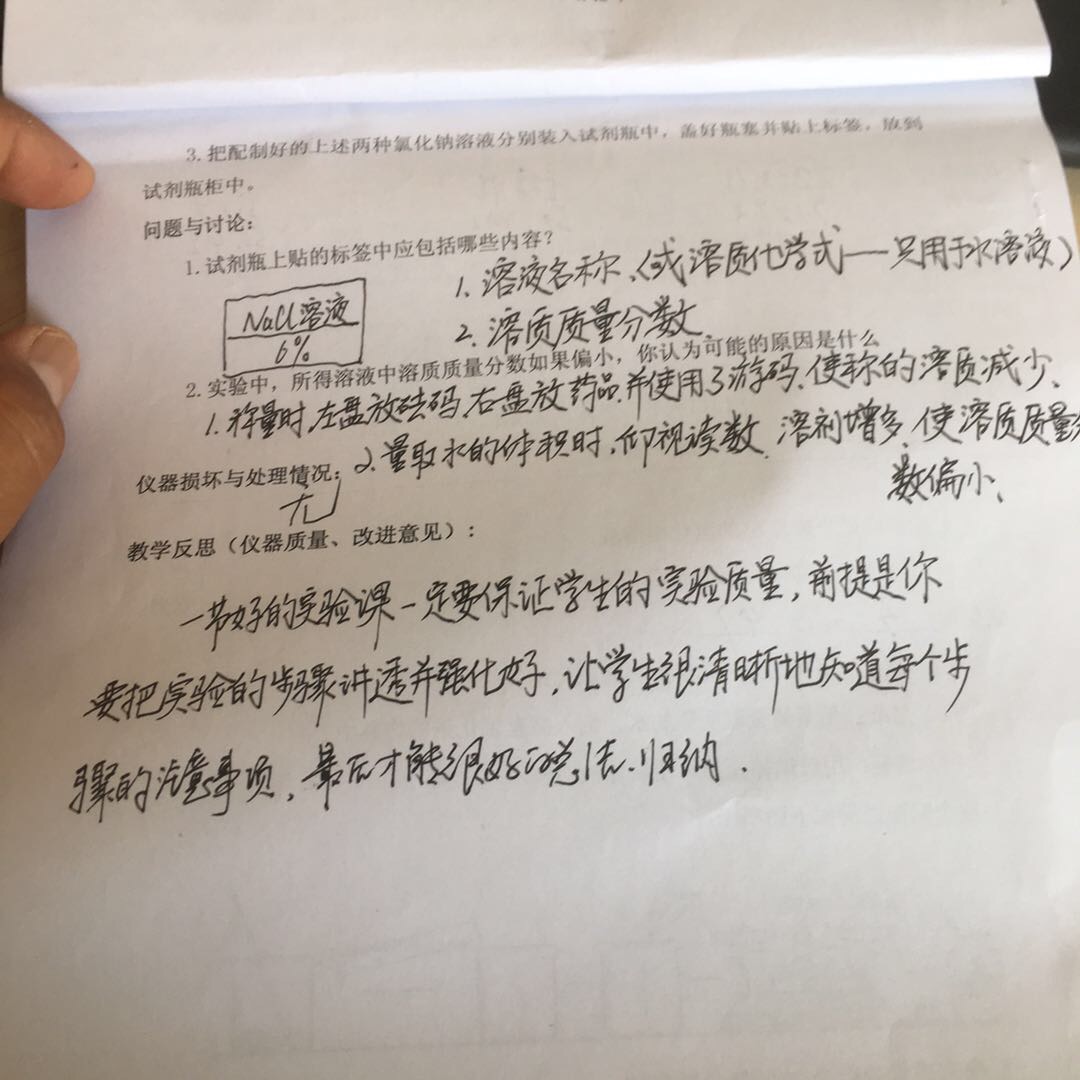 3. 把配制好的上述两种氯化钠溶液分别装入试剂瓶中，盖好瓶塞并贴上标签，放到
试剂瓶柜中。
问题与讨论：
1. 试剂瓶上贴的标签中应包括哪些内容？
1. 溶液名称、(或溶质化学式——只用于水溶液)
NaCl溶液
6%
2. 溶质质量分数
2. 实验中，所得溶液中溶质质量分数如果偏小，你认为可能的原因是什么
1. 称量时，左盘放砝码，右盘放药品，并使用了游码、使称的溶质减少、
2. 量取水的体积时，仰视读数，溶剂增多、使溶质质量分
数偏小、
仪器损坏与处理情况：
无
教学反思（仪器质量、改进意见）：
一节好的实验课一定要保证学生的实验质量，前提是你
要把实验的步骤讲透并强化好，让学生很清晰地知道每个步
骤的注意事项，最后才能很好的总结、归纳．